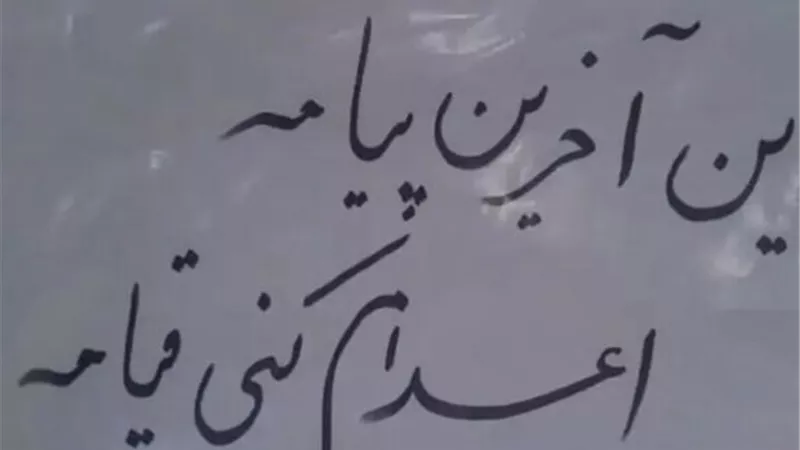 ین آخرین پیامه
اعدام کنی قیامه